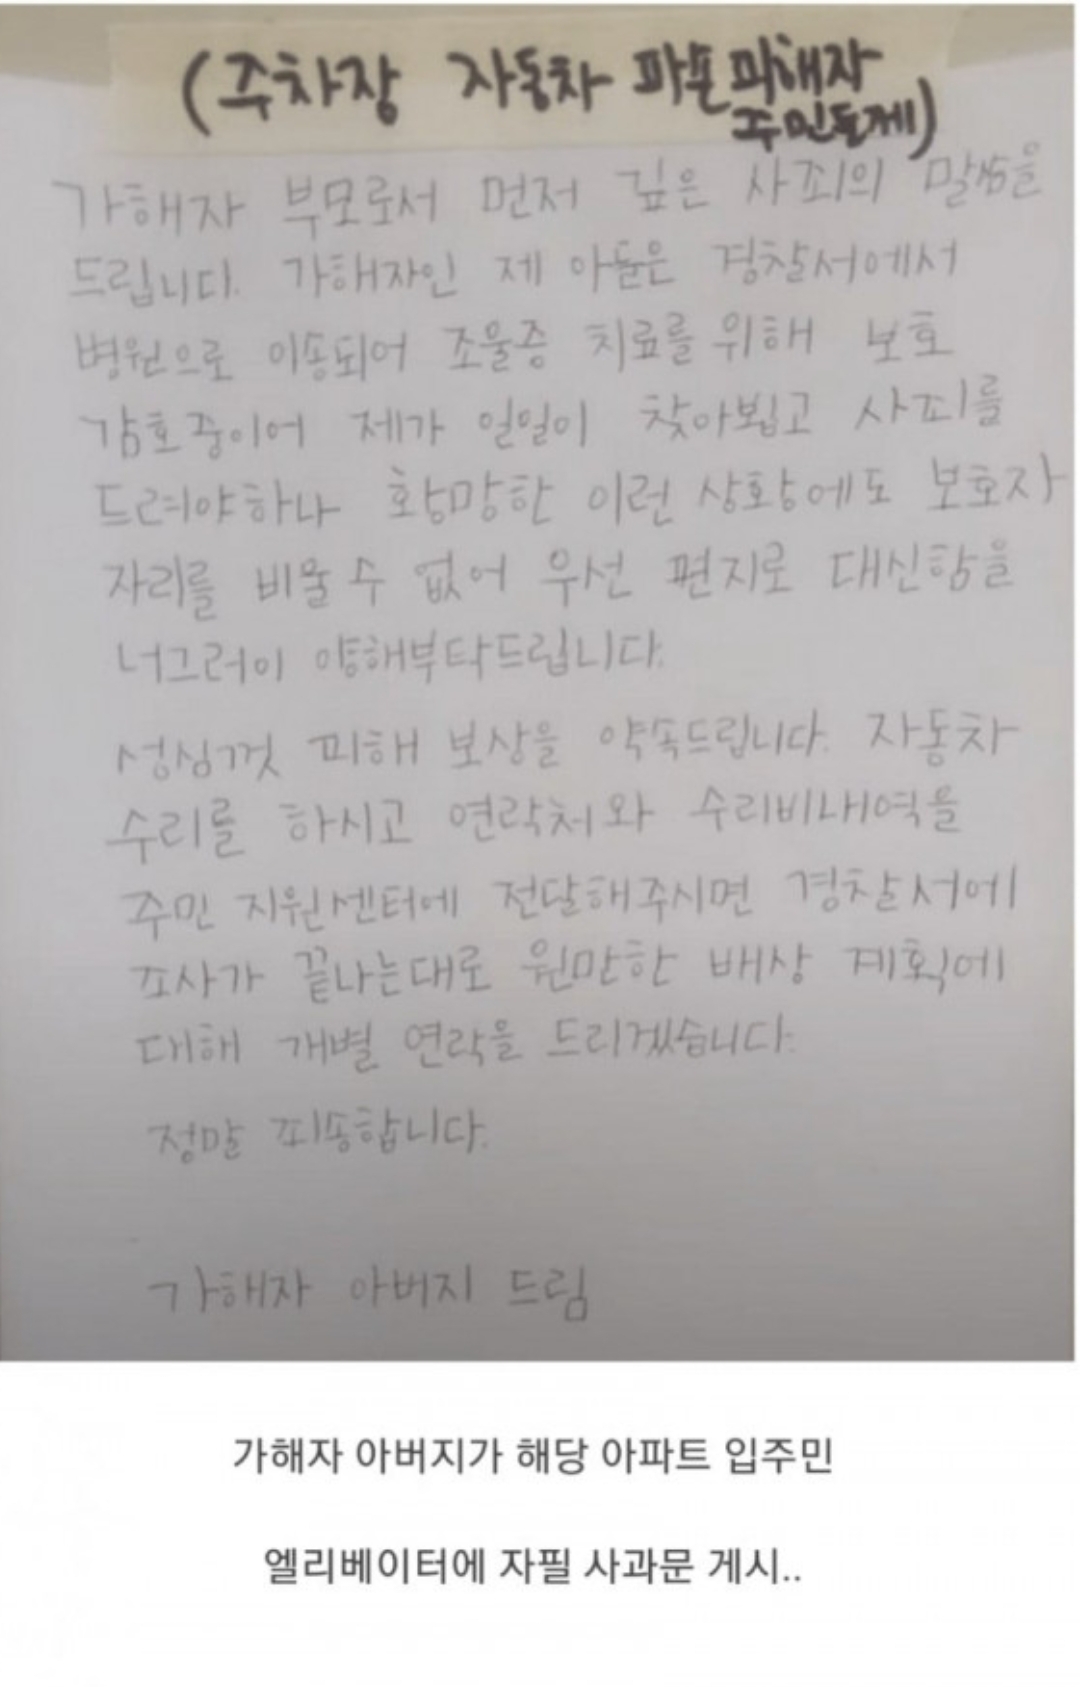 (주차장 자동차 파손피해자
주민들께)
가해자 부모로서 먼저 깊은 사죄의 말씀을
드립니다. 가해자인 제 아들은 경찰서에서
병원으로 이송되어 조울증 치료를 위해 보호
감호중이어 제가 일일이 찾아뵙고 사죄를
드려야하나 황망한 이런 상황에도 보호자
자리를 비울 수 없어 우선 편지로 대신함을
너그러이 양해부탁드립니다.
성심껏 피해 보상을 약속드립니다. 자동차
수리를 하시고 연락처와 수리비내역을
주민 지원센터에 전달해주시면 경찰서에
조사가 끝나는대로 원만한 배상 계획에
대해 개별 연락을 드리겠습니다.
정말 죄송합니다.
가해자 아버지 드림
가해자 아버지가 해당 아파트 입주민
엘리베이터에 자필 사과문 게시..